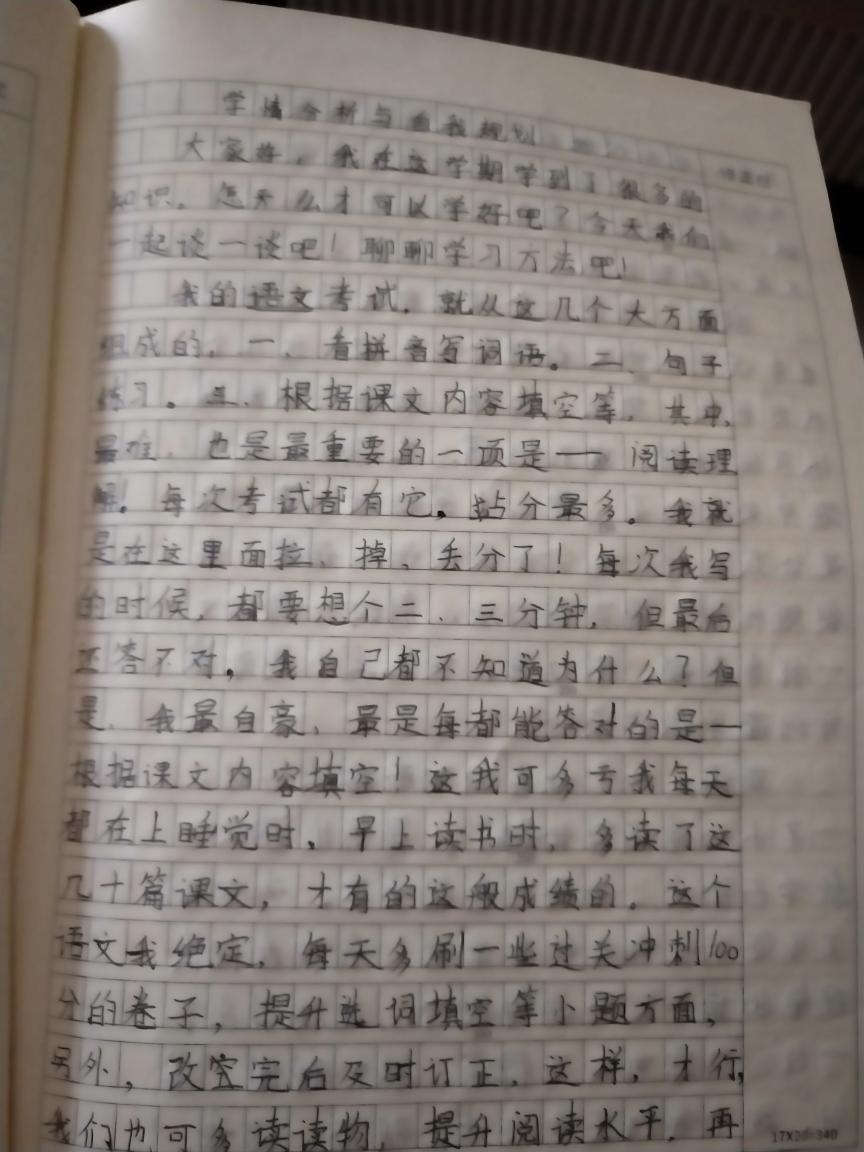 学情分析与自我规划
大家好，我在这学期学到了很多的
知识。怎么才可以学好吧？今天我们
一起谈一谈吧！聊聊学习方法吧！
我的语文考试，就从这几个大方面
组成的，一、看拼音写词语。二、句子
练习。三、根据课文内容填空等，其中，
最难，也是最重要的一项是——阅读理
解！每次考试都有它，占分最多。我就
是在这里面拉、掉、丢分了！每次我写
的时候，都要想个二、三分钟，但最后
还答不对，我自己都不知道为什么？但
是，我最自豪、最是每都能答对的是一
根据课文内容填空！这我可多亏我每天
都在上睡觉时，早上读书时，多读了这
几十篇课文，才有的这般成绩的。这个
语文我绝定，每天多刷一些过关冲刺100
分的卷子，提升选词填空等小题方面，
另外，改完后及时订正，这样，才行，
我们也可多读读物，提升阅读水平，再
17X20=340